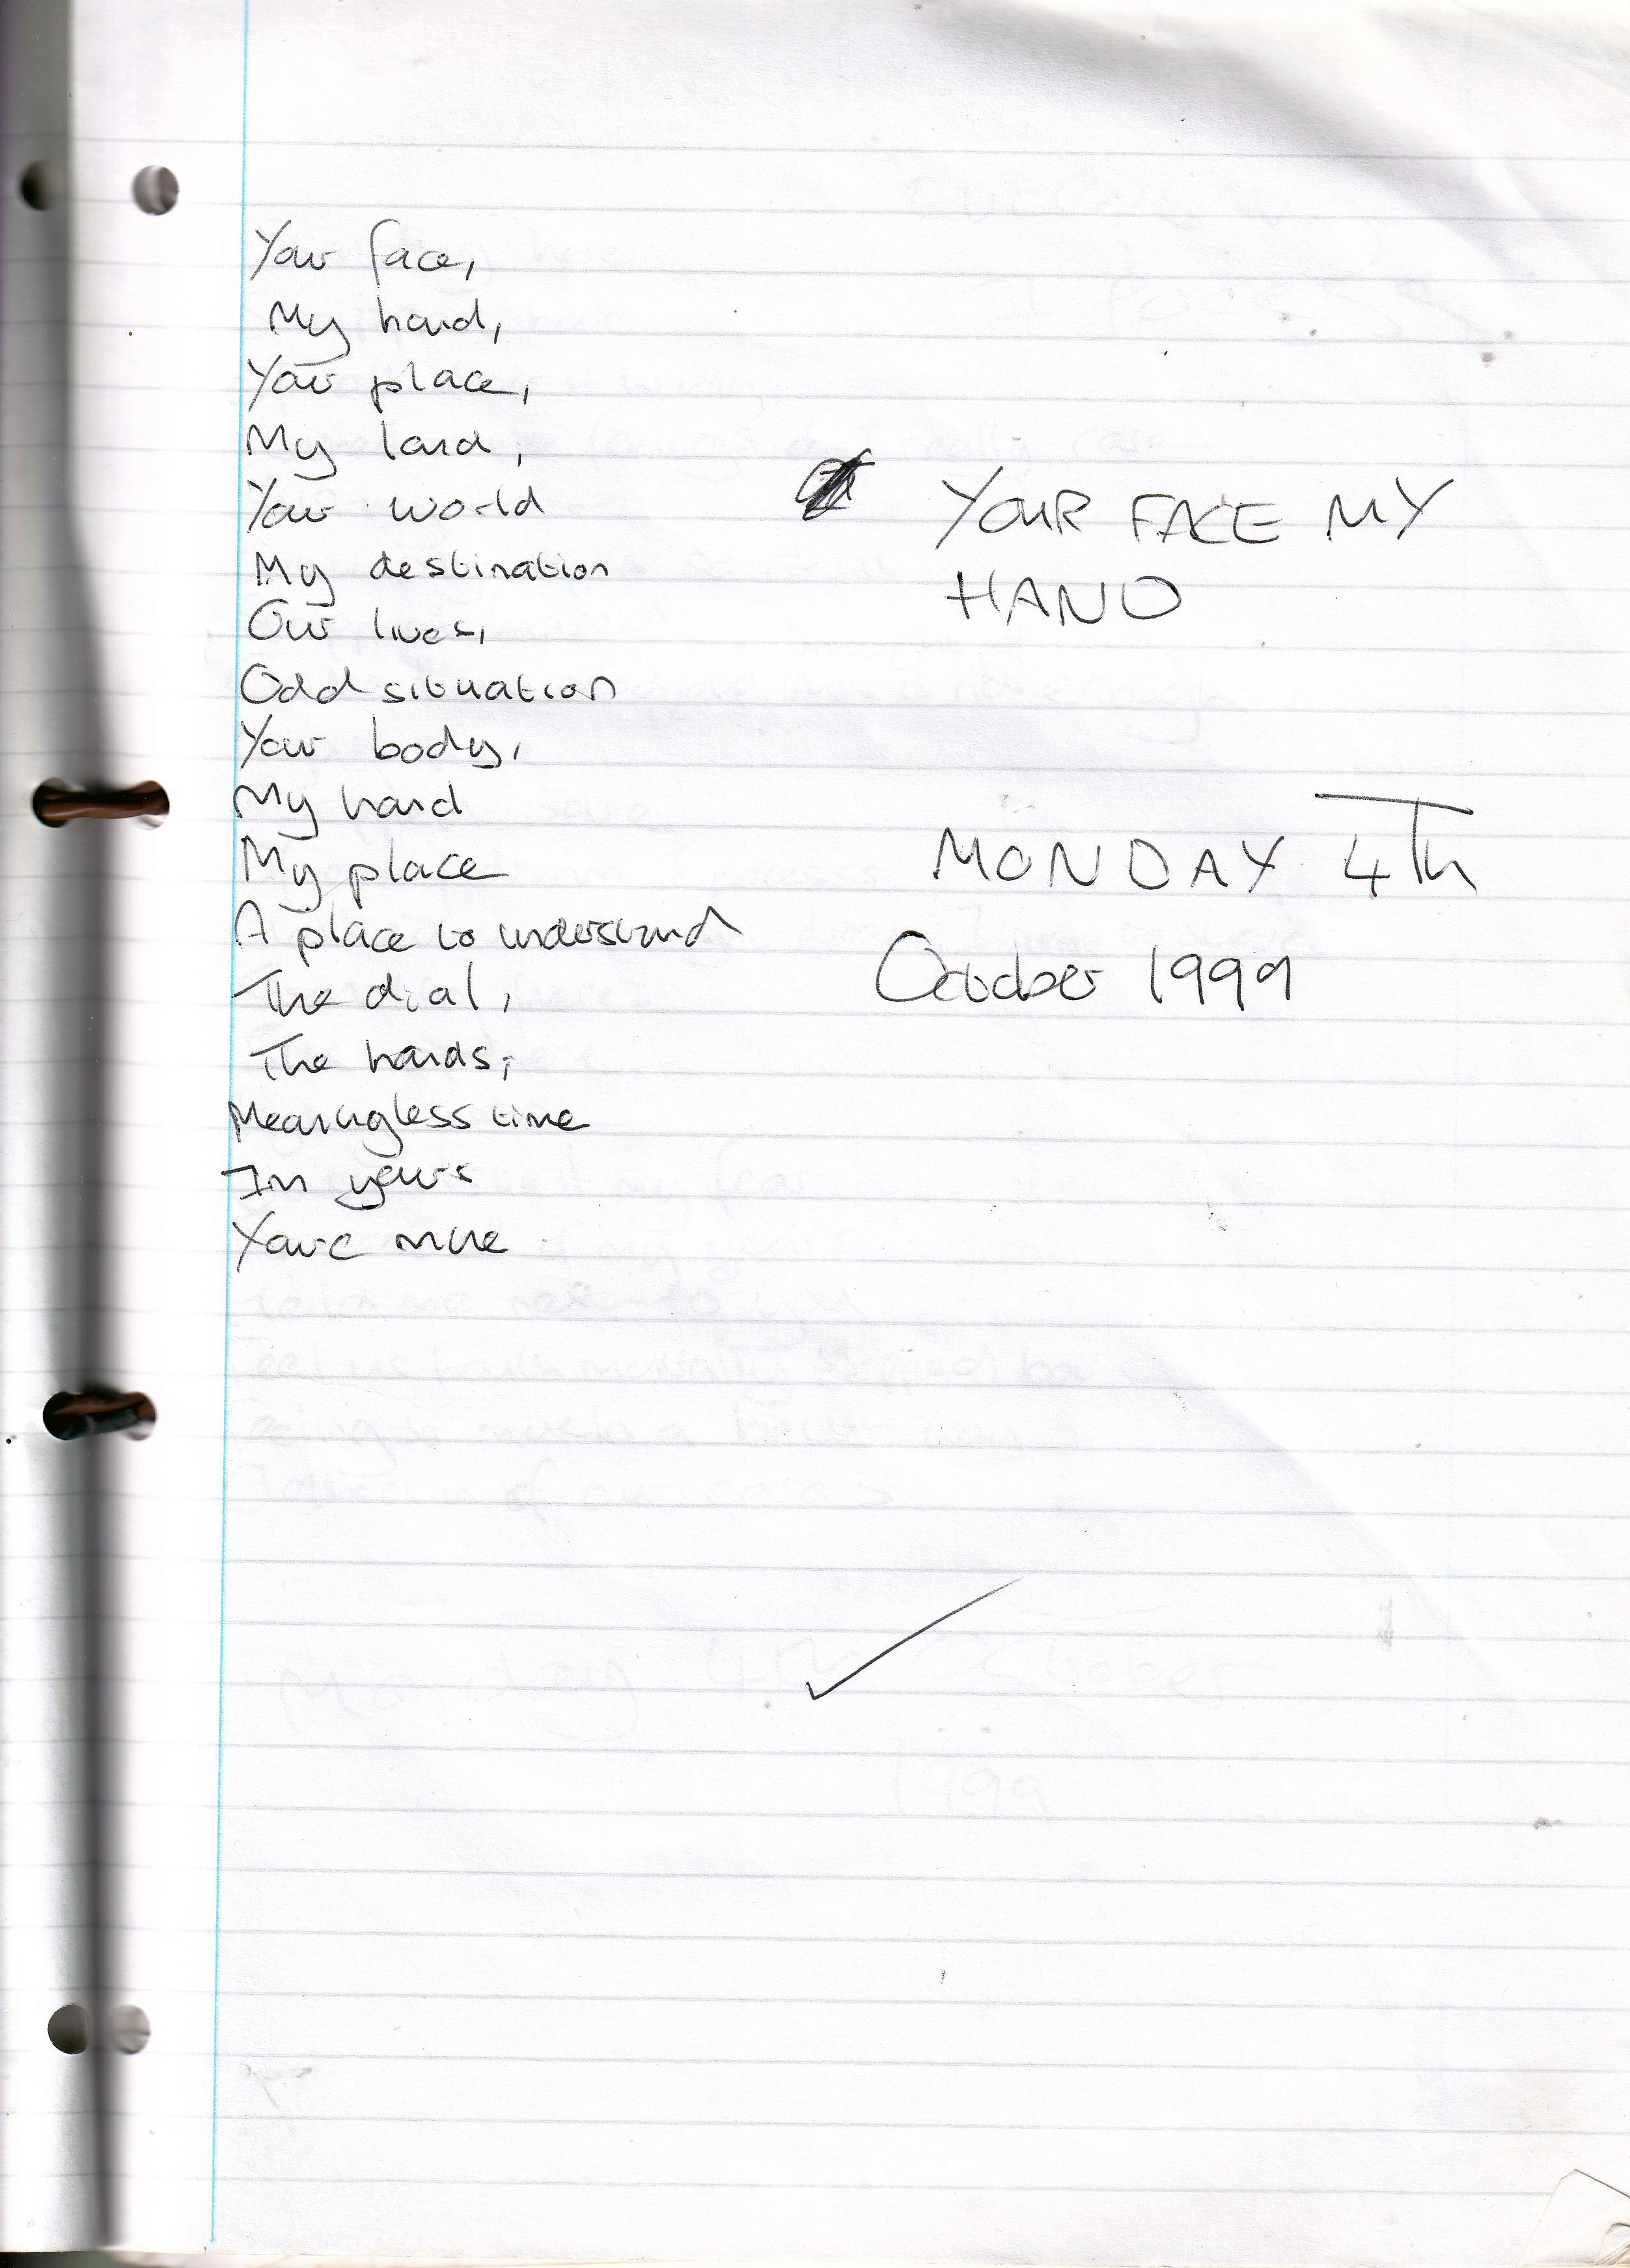 Your face,
My hand,
Your place,
My land,
Your world
My destination
Our lives,
Odd situation
Your body,
My hand
My place
A place to understand
The dial,
The hands,
Meaningless time
Im yours
Youre mine
YOUR FACE MY
HAND
MONDAY 4Th
October 1999